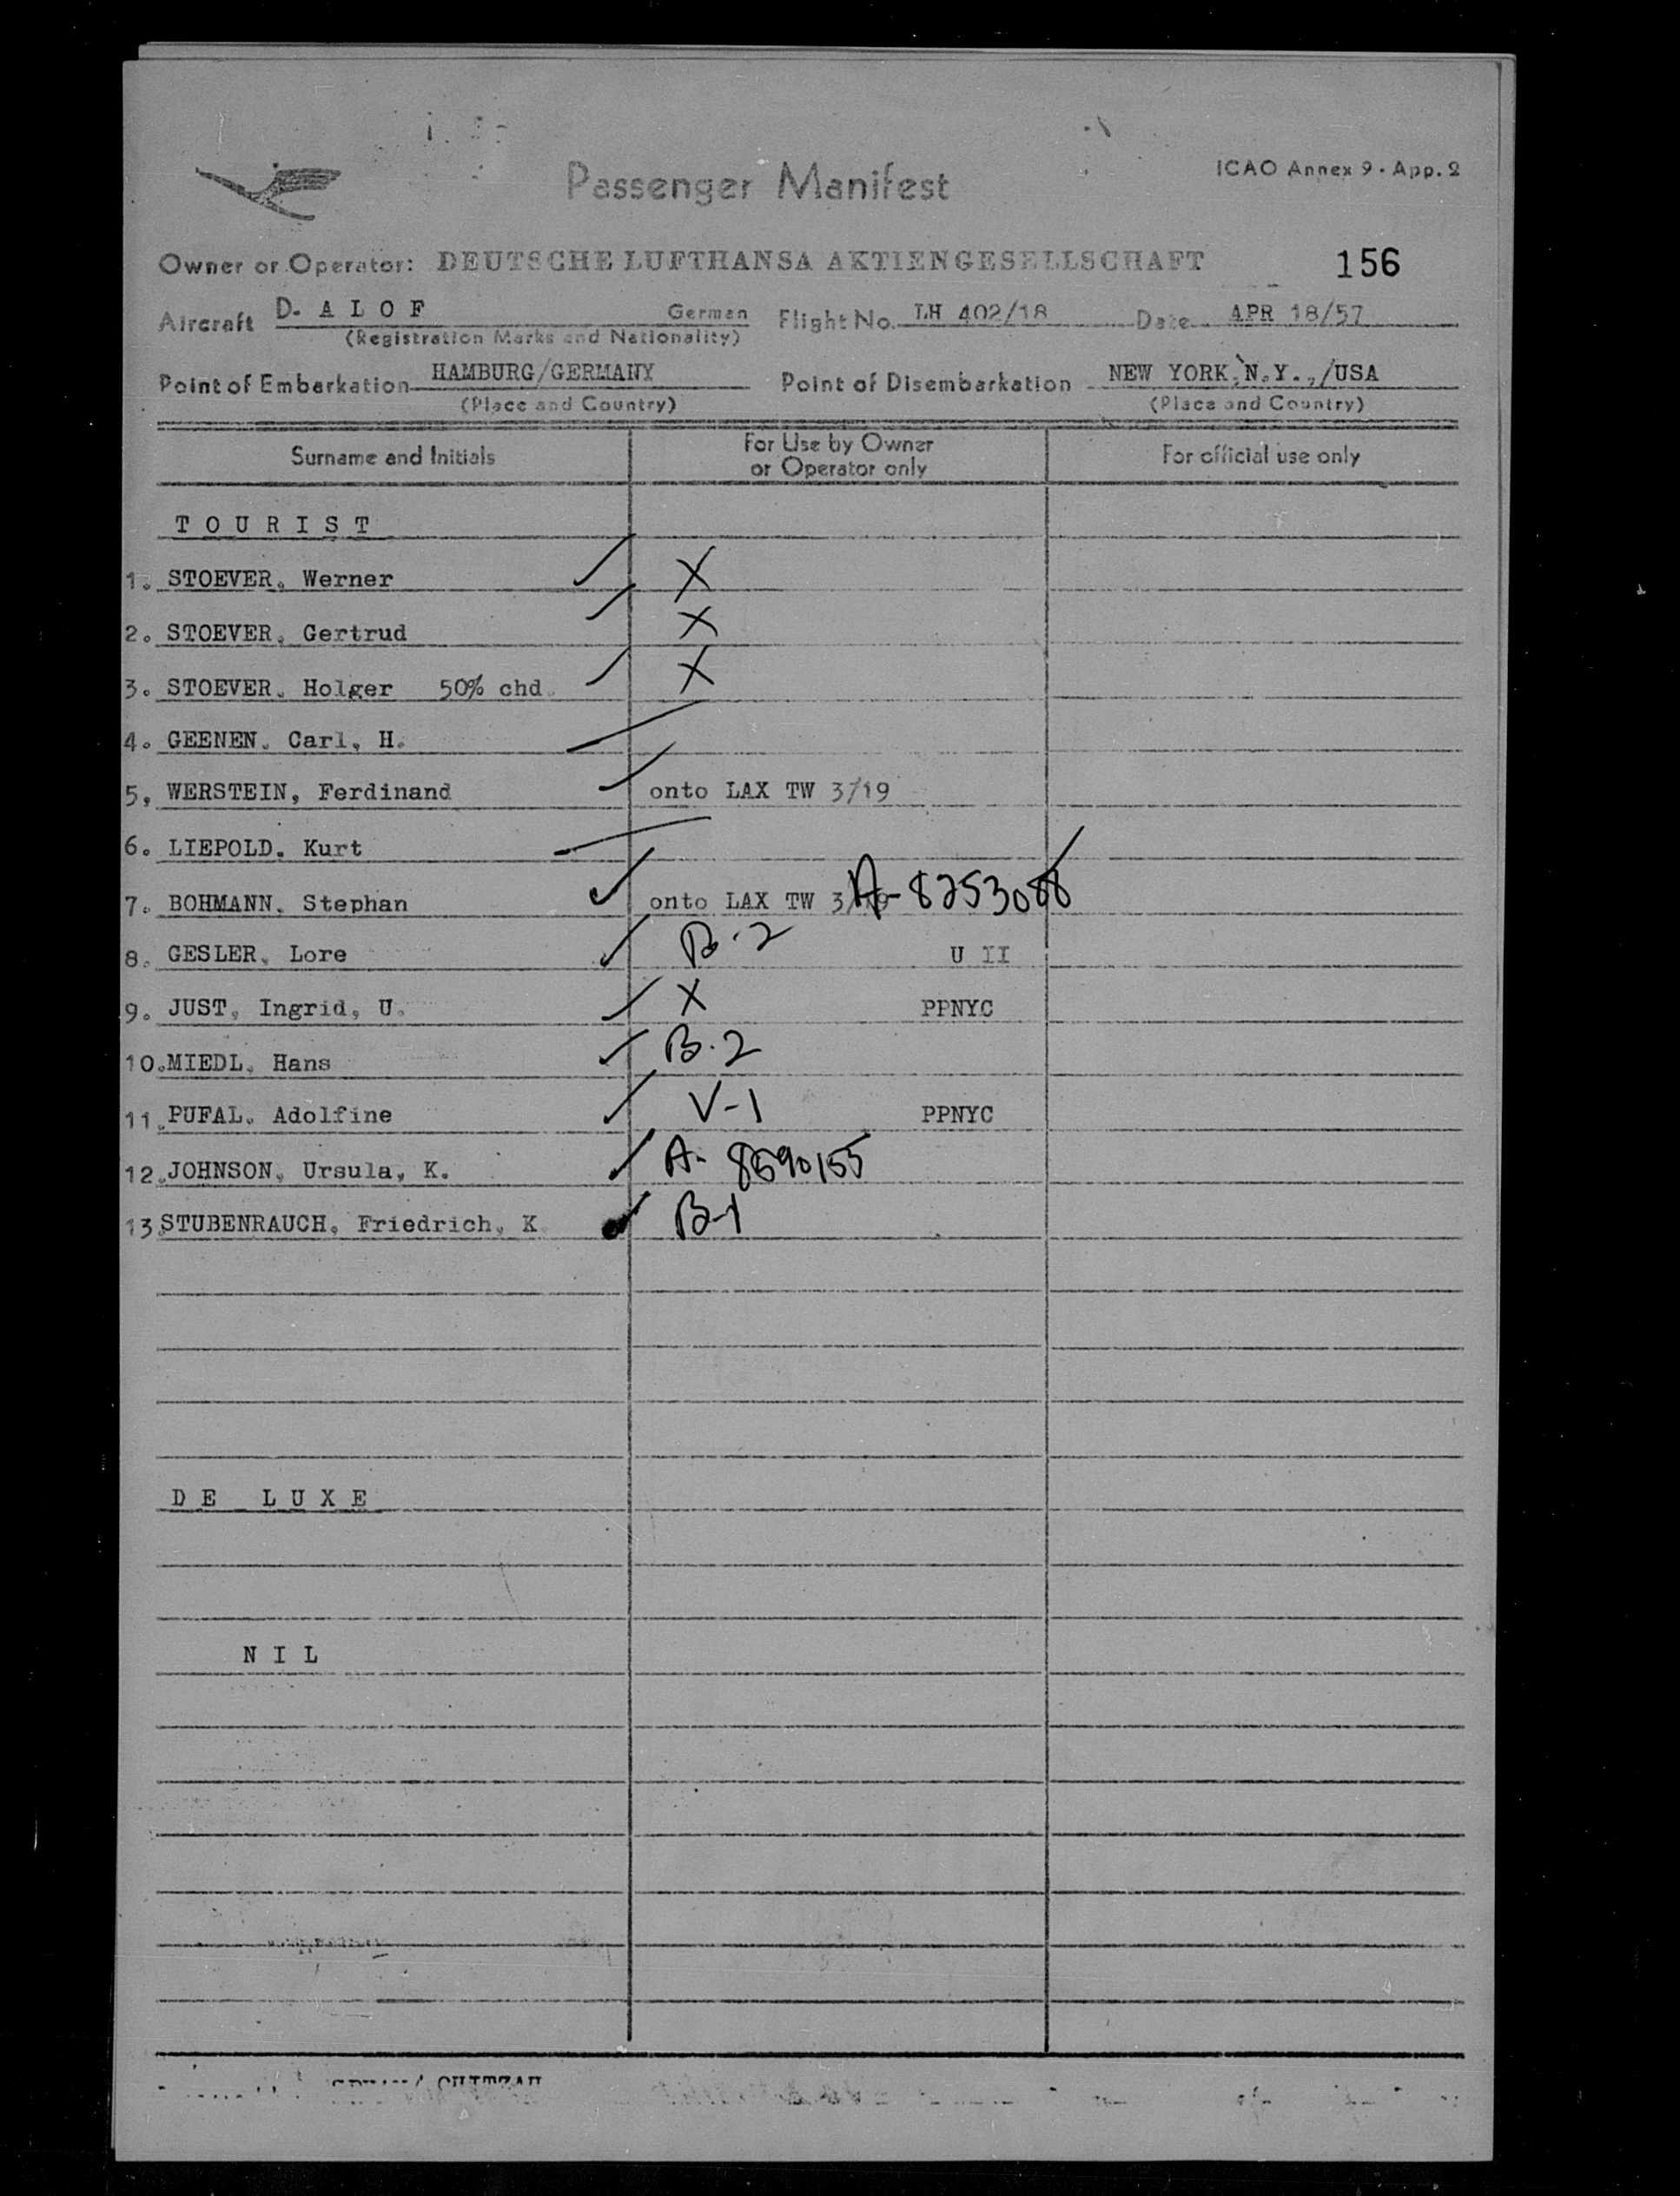 Passenger Manifest
ICAO Annex 9 - App. 2
Owner or Operator: DEUTSCHE LUFTHANSA AKTIENGESELLSCHAFT 156
Aircraft D- A L O F German Flight No. LH 402/18 Date APR 18/57
(Registration Marks and Nationality)
Point of Embarkation HAMBURG/GERMANY Point of Disembarkation NEW YORK,N.Y.,/USA
(Place and Country) (Place and Country)
Surname and Initials For Use by Owner or Operator only For official use only
T O U R I S T
1. STOEVER, Werner X
2. STOEVER, Gertrud X
3. STOEVER, Holger 50% chd. X
4. GEENEN, Carl, H.
5, WERSTEIN, Ferdinand onto LAX TW 3/19
6. LIEPOLD, Kurt
7. BOHMANN, Stephan onto LAX TW A-8253086
8. GESLER, Lore B-2 U II
9. JUST, Ingrid, U. X PPNYC
10.MIEDL, Hans B-2
11.PUFAL, Adolfine V-1 PPNYC
12.JOHNSON, Ursula, K. A- 8690155
13.STUBENRAUCH, Friedrich, K. B-1
D E L U X E
N I L